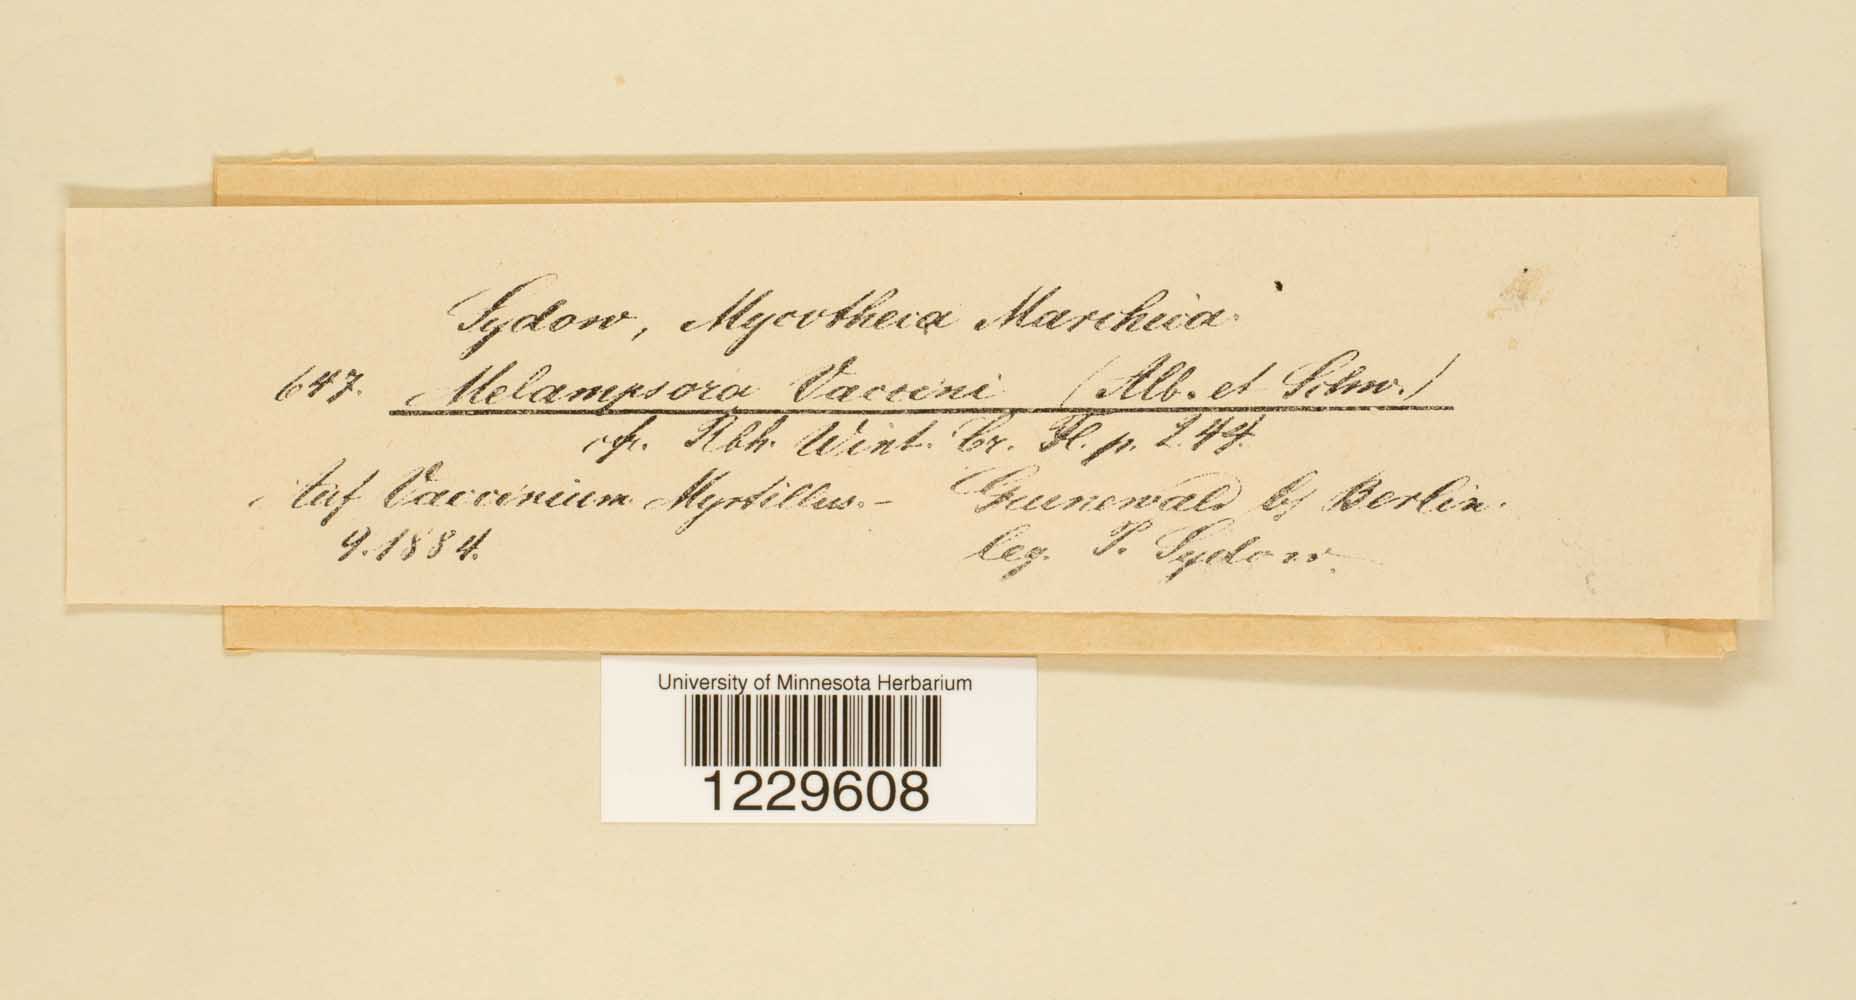 Sydow, Mycotheca Marchica.
647. Melampsora Vaccini (Alb. et Schw.)
cfr. Rbh. Wint. Cr. Fl. p. 244.
Auf Vaccinium Myrtillus. – Grunewald b/ Berlin.
9. 1884. leg. P. Sydow.
University of Minnesota Herbarium
1229608